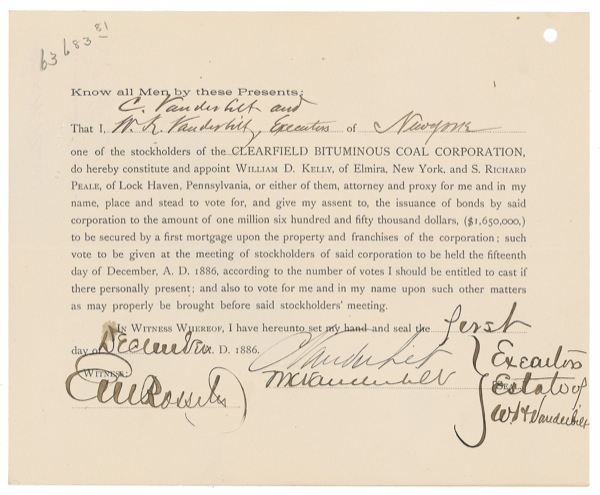 63683 81
Know all Men by these Presents:
C. Vanderbilt and
That I, W. K. Vanderbilt, Executors of New York
one of the stockholders of the CLEARFIELD BITUMINOUS COAL CORPORATION,
do hereby constitute and appoint WILLIAM D. KELLY, of Elmira, New York, and S. RICHARD
PEALE, of Lock Haven, Pennsylvania, or either of them, attorney and proxy for me and in my
name, place and stead to vote for, and give my assent to, the issuance of bonds by said
corporation to the amount of one million six hundred and fifty thousand dollars, ($1,650,000,)
to be secured by a first mortgage upon the property and franchises of the corporation; such
vote to be given at the meeting of stockholders of said corporation to be held the fifteenth
day of December, A. D. 1886, according to the number of votes I should be entitled to cast if
there personally present; and also to vote for me and in my name upon such other matters
as may properly be brought before said stockholders' meeting.
IN WITNESS WHEREOF, I have hereunto set my hand and seal the first
day of December A. D. 1886.
C Vanderbilt
WITNESS:
WKVanderbilt
[SEAL]
Executors
Estate of
W. H. Vanderbilt